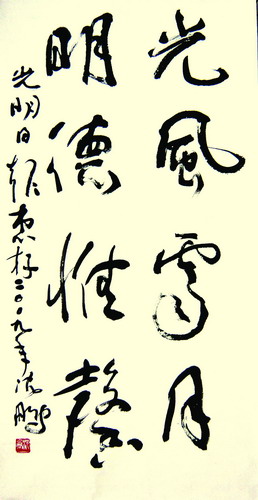 光風霽月
明德惟馨
光明日報惠存二〇〇九年沈鵬